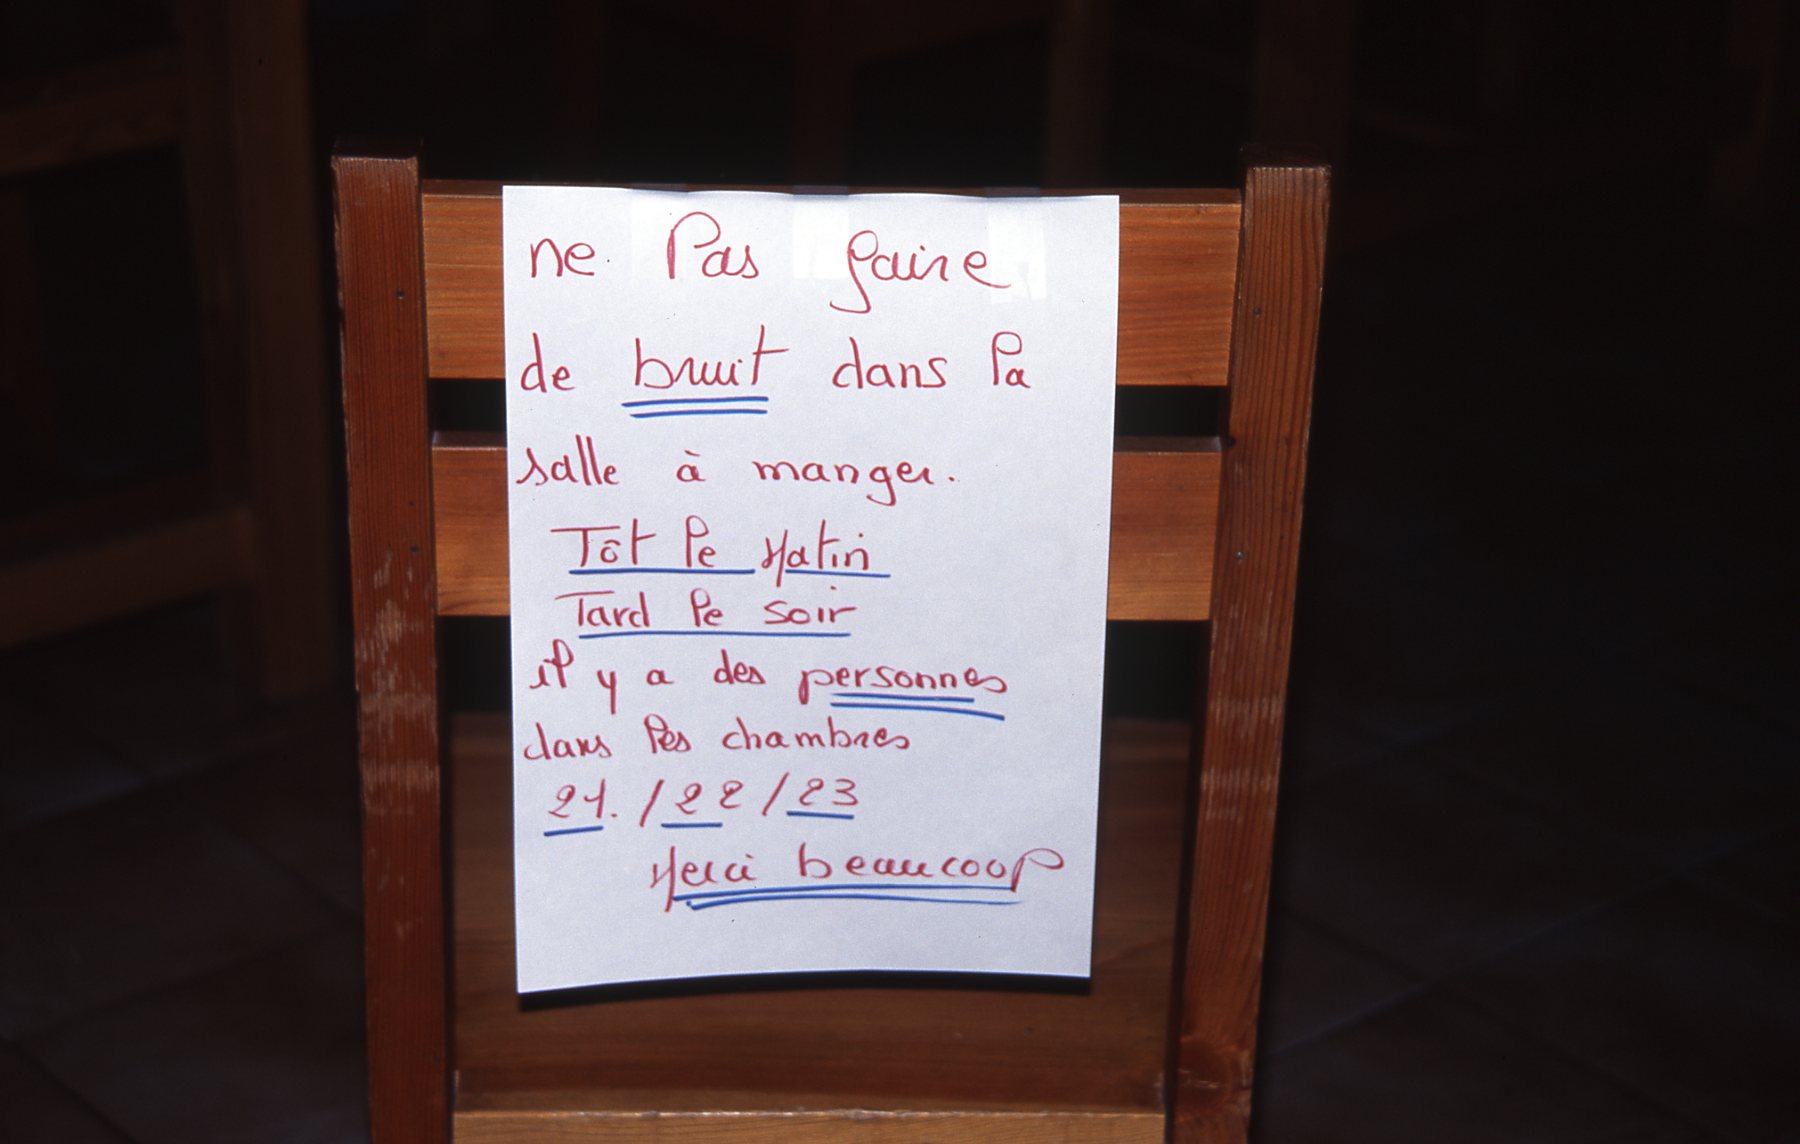 ne Pas faire
de bruit dans la
salle à manger.
Tôt le Matin
Tard le soir
il y a des personnes
dans les chambres
21. / 22 / 23
Merci beaucoop